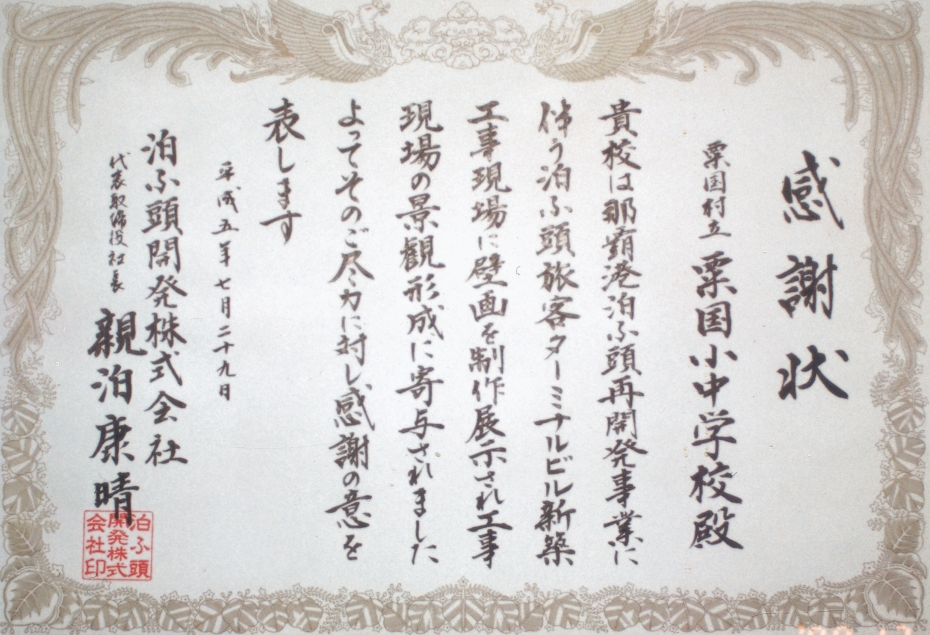 感謝状
粟国村立 粟国小中学校殿
貴校は那覇港泊ふ頭再開発事業に
伴う泊ふ頭旅客ターミナルビル新築
工事現場に壁画を制作展示され工事
現場の景観形成に寄与されました
よってそのご尽力に対し感謝の意を
表します
平成五年七月二十九日
泊ふ頭開発株式会社
代表取締役社長 親泊康晴
泊ふ頭
開発株式
会社印